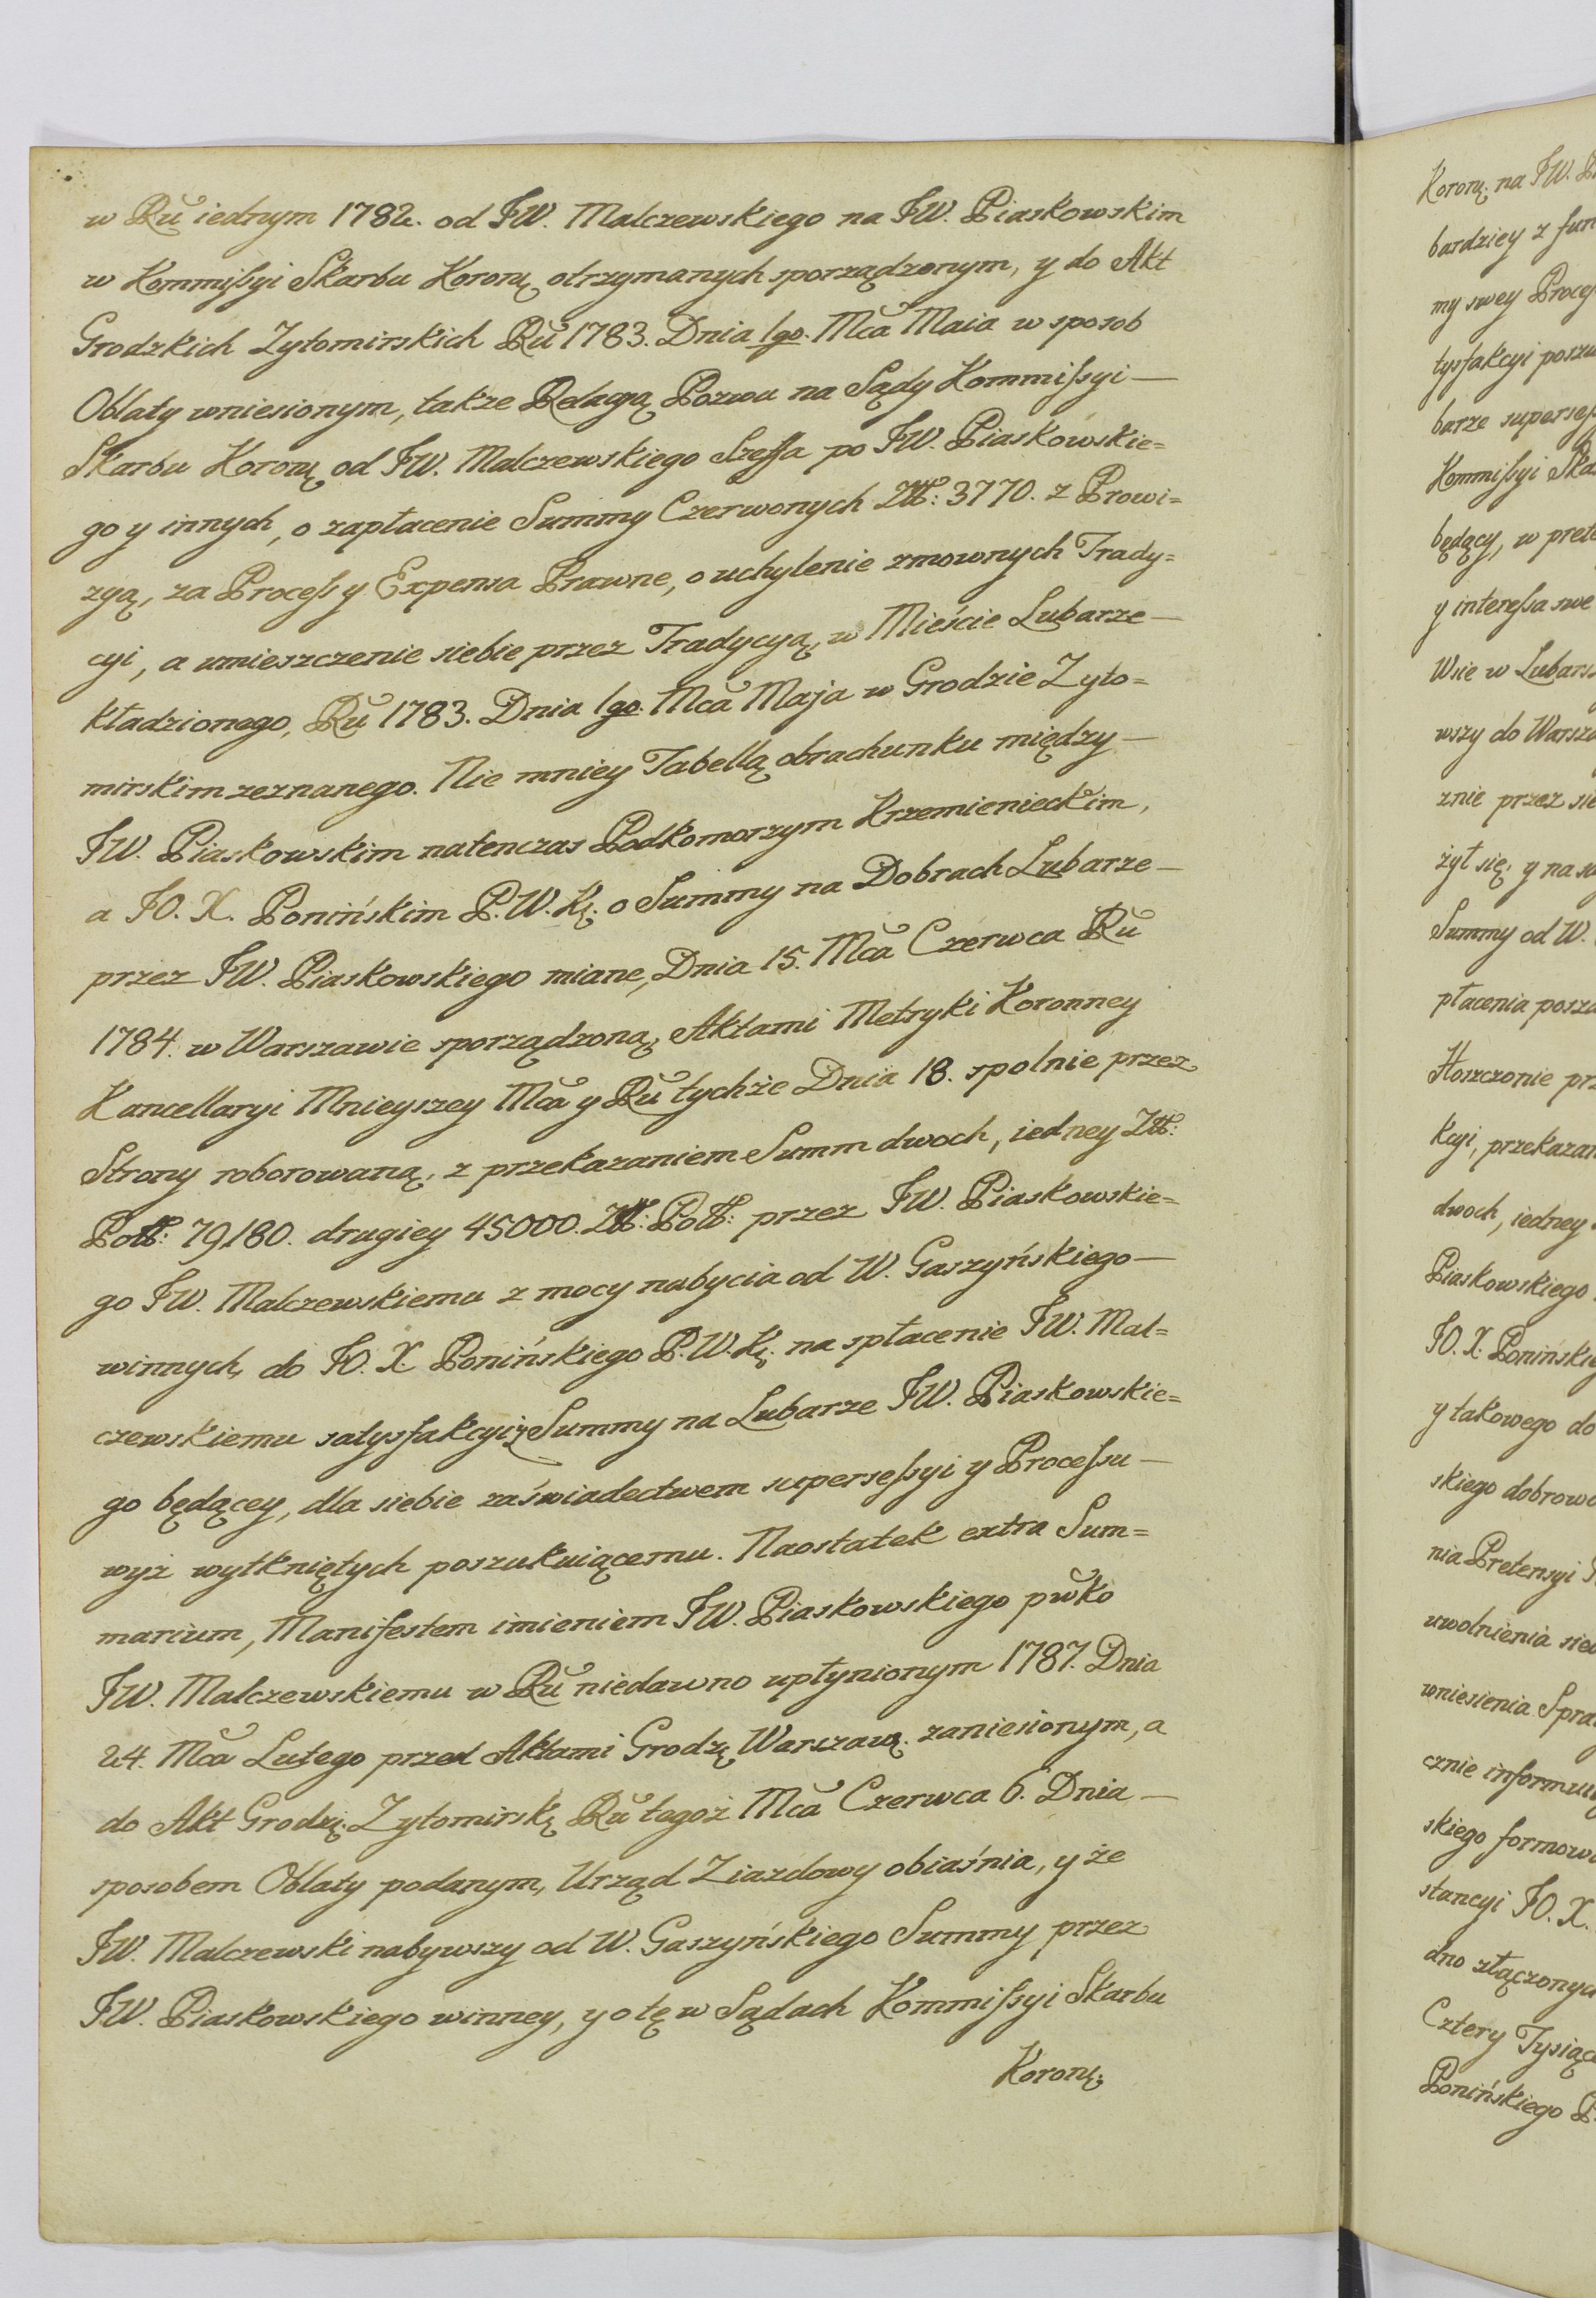 w Ru iednym 1782. od JW. Malczewskiego na JW. Piaskowskim
w Kommissyi Skarbu Koronę otrzymanych sporządzonym, y do Akt
Grodzkich Zytomirskich Ru 1783. Dnia 1go. Mca Maia w sposob
Oblaty wniesionym, takze Relacyą Pozwu na Sądy Kommissyi —
Skarbu Koronę od JW. Malczewskiego Szeffa po JW. Piaskowskie=
go y innych, o zapłacenie Summy Czerwonych Złł: 3770. z Prowi=
zyą, za Process y Expensa Prawne, o uchylenie zmownych Trady=
cyi, a umieszczenie siebie przez Tradycyą, w Mieście Lubarze —
kładzionego, Ru 1783. Dnia 1go. Mca Maja w Grodzie Zyto=
mirskim zeznanego. Nie mniey Tabellą obrachunku między —
JW. Piaskowskim natenczas Podkomorzym Krzemienieckim,
a JO. X. Ponińskim P. W. Kę. o Summy na Dobrach Lubarze —
przez JW. Piaskowskiego miane, Dnia 15. Mca Czerwca Ru
1784. w Warszawie sporządzoną, Aktami Metryki Koronney
Kancellaryi Mnieyszey Mca y Ru tychże Dnia 18. spolnie przez
Strony roborowaną, z przekazaniem Summ dwoch, iedney Złł:
Połł: 79180. drugiey 45000. Złł: Połł: przez JW. Piaskowskie=
go JW. Malczewskiemu z mocy nabycia od W. Gaszyńskiego —
winnych, do JO. X. Ponińskiego P. W. Kę. na spłacenie JW. Mal=
czewskiemu satysfakcyi z Summy na Lubarze JW. Piaskowskie=
go będącey, dla siebie zaświadectwem supersessyi y Processu —
wyż wytkniętych poszukuiącemu. Naostatek extra Sum=
marium, Manifestem imieniem JW. Piaskowskiego pwko
JW. Malczewskiemu w Ru niedawno upłynionym 1787. Dnia
24. Mca Lutego przed Aktami Grodzę Warszawę. zaniesionym, a
do Akt Grodzę. Zytomirskę Ru tegoż Mca Czerwca 6. Dnia —
sposobem Oblaty podanym, Urząd Ziazdowy obiaśnia, y że
JW. Malczewski nabywszy od W. Gaszyńskiego Summy przez
JW. Piaskowskiego winney, y o tę w Sądach Kommissyi Skarbu
Koronę.
Koronę. na JW.
bardziey z
my swey
tysfakcyi
barze
Kommissyi
będący, w
y interessa swe
Wsie w
wszy do
znie przez
żył się, y na
Summy od W.
płacenia
Hoszczonie
kcyi,
dwoch, iedney
Piaskowskiego
JO. X.
y takowego do
skiego
nia Pretensyi
uwolnienia
wniesienia
cznie
skiego
stancyi JO. X.
dno
Cztery
Ponińskiego